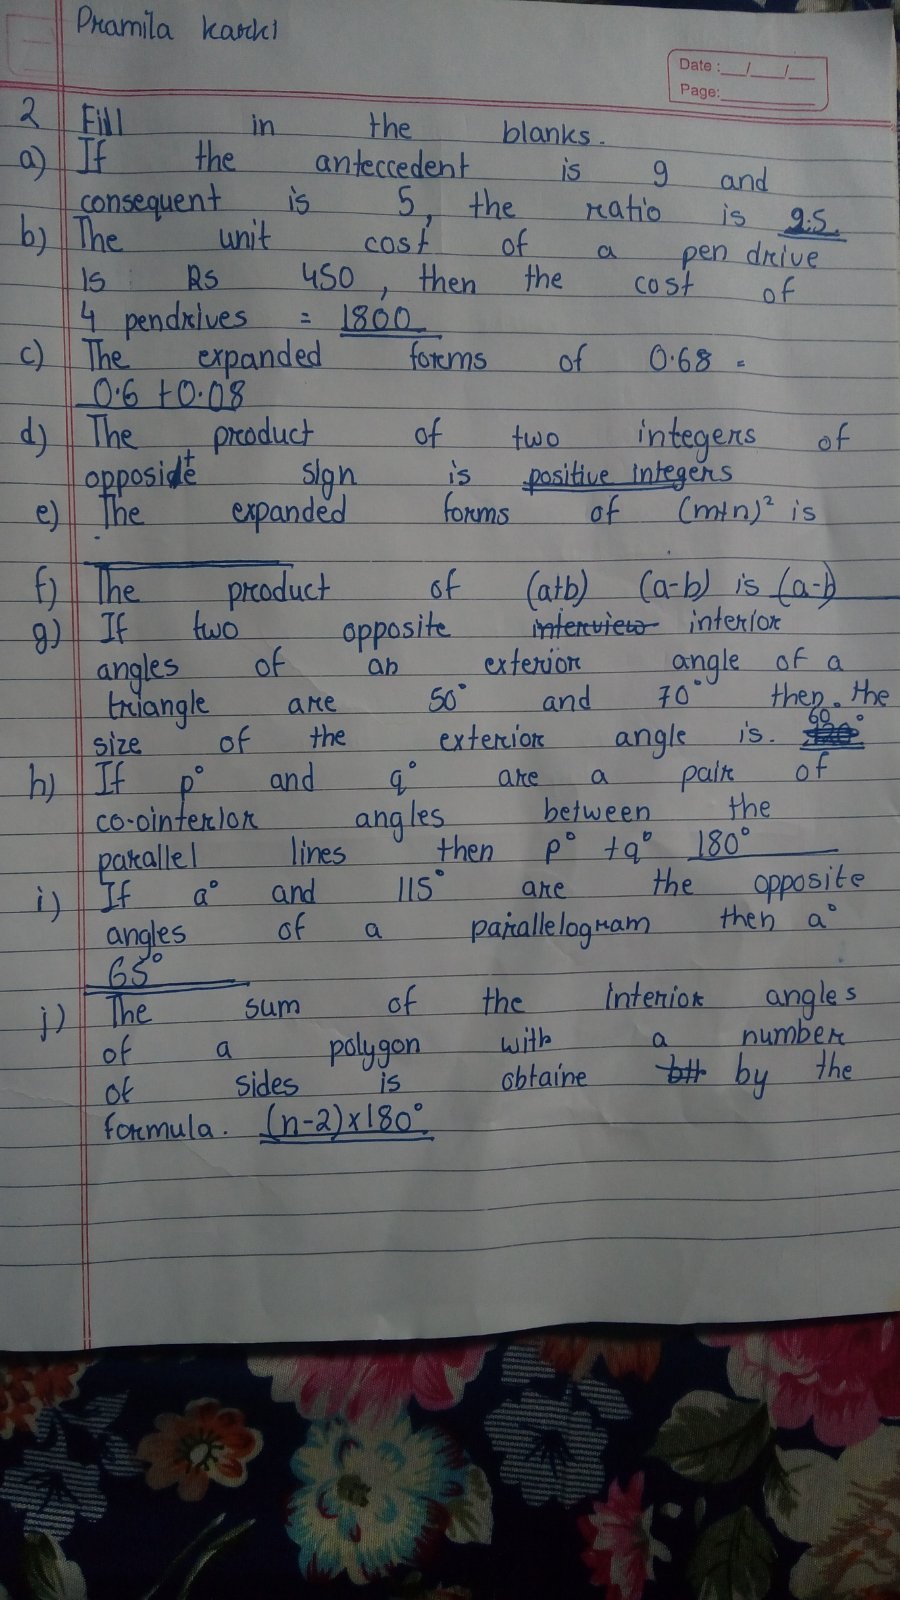 Pramila karki
Date :__/__/__
Page:______
2 Fill in the blanks.
a) If the anteccedent is 9 and
consequent is 5, the ratio is 9:5.
b) The unit cost of a pen drive
is Rs 450, then the cost of
4 pendrives = 1800
c) The expanded forms of 0.68 =
0.6 + 0.08
d) The product of two integers of
opposidt sign is positive integers
e) The expanded forms of (m+n)² is
f) The product of (a+b) (a-b) is (a-b)
g) If two opposite interview interior
angles of an exterior angle of a
triangle are 50° and 70° then. the
size of the exterior angle is. 60°
h) If p° and q° are a pair of
co-ointerior angles between the
parallel lines then p° + q° 180°
i) If a° and 115° are the opposite
angles of a parallelogram then a°
65°
j) The sum of the interior angles
of a polygon with a number
of sides is obtaine by the
formula. (n-2)x180°